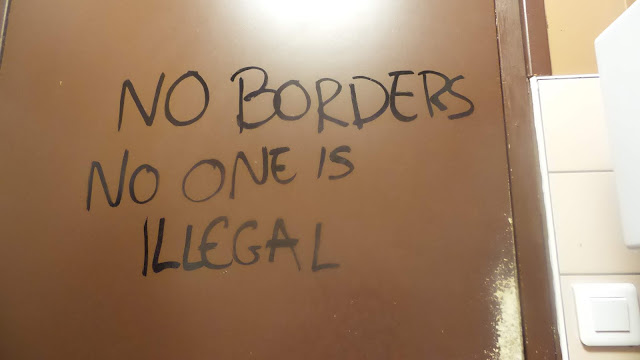 NO BORDERS
NO ONE IS
ILLEGAL